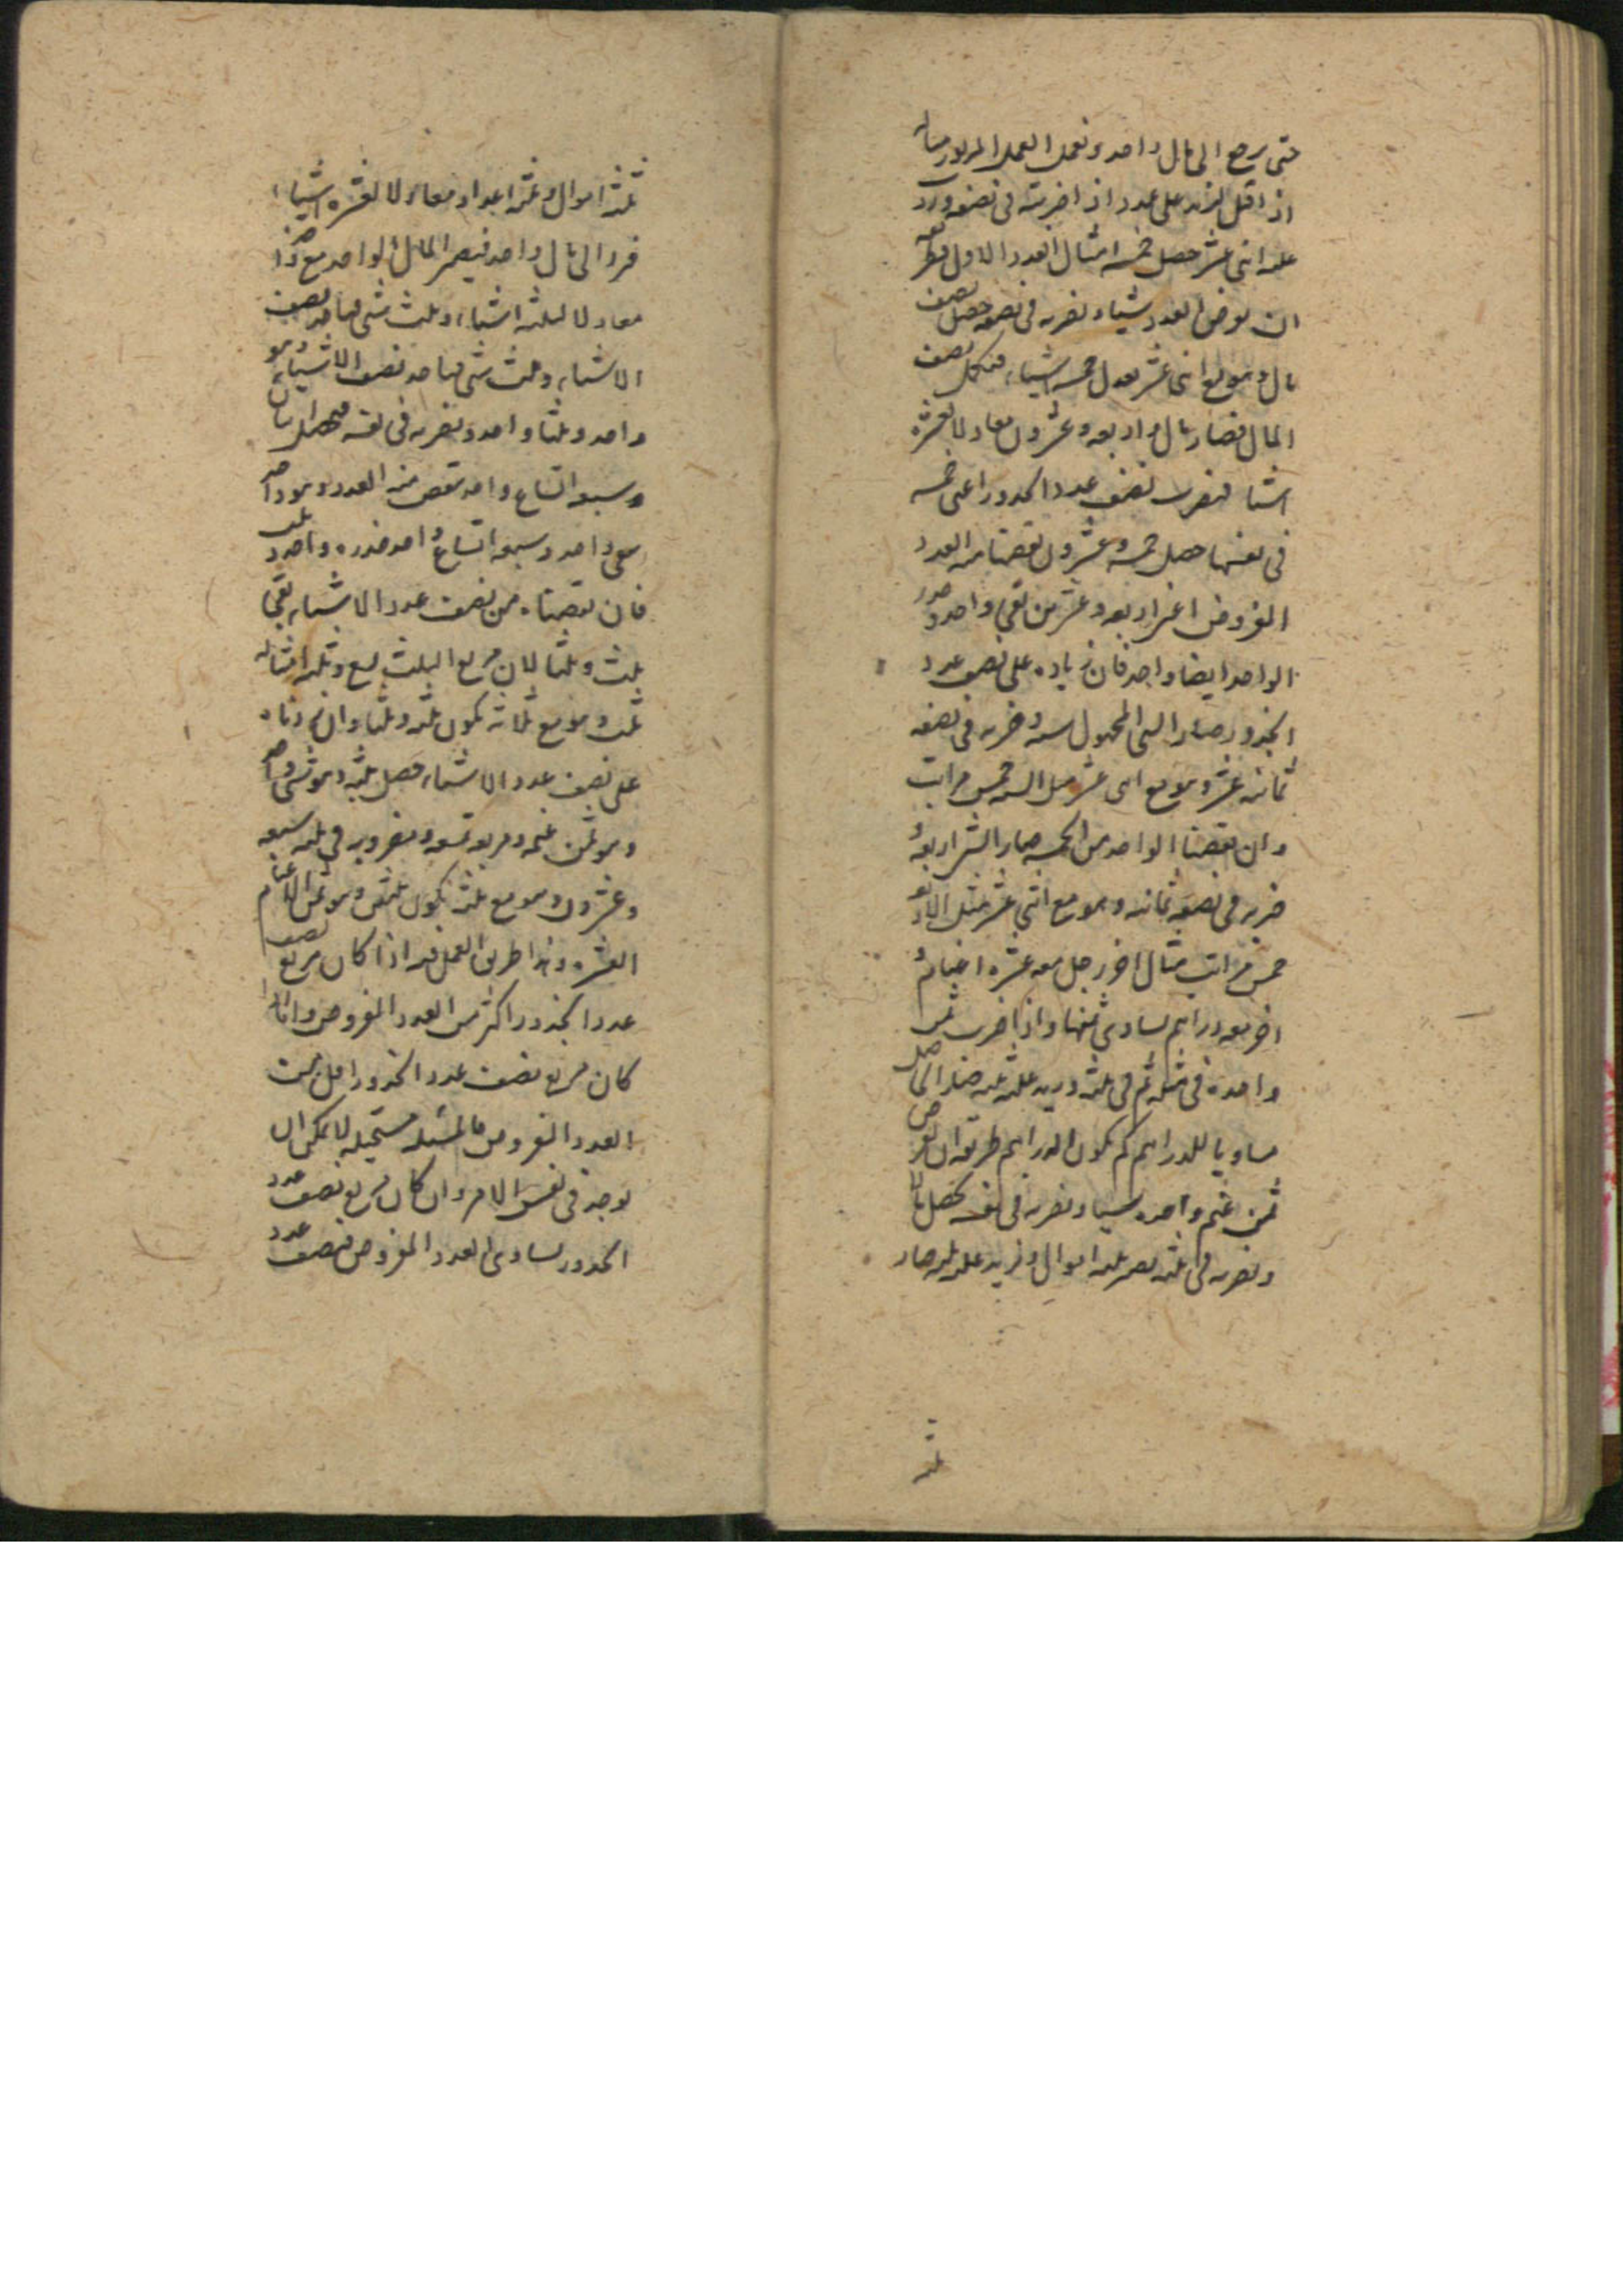 حتى يرجع الى مال واحد ونعمل العمل المزبور مثاله
اذا قيل لزيد على عدد اذا ضربته فى نصفه وزدت
عليه اثنى عشر حصل خمسة امثال العدد الاول فطريقه
ان نفرض العدد شيئا ونضربه فى نصفه حصل نصف
مال وهو مع اثنى عشر يعدل خمسة اشياء فنكمل نصف
المال فصار مال واربعة وعشرون معادلا لعشرة
اشيا فنضرب نصف عدد الجذور اعنى خمسة
فى نفسها حصل خمسة وعشرون نقصنا منه العدد
المفروض اعنى اربعة وعشرين بقى واحد وجذر
الواحد ايضا واحد فان زيادة على نصف عدد
الجذور صار الشى المجهول ستة وضربه فى نصفه
ثمانية عشر وهو مع اثنى عشر مثل الستة خمس مرات
وان نقصنا الواحد من الخمسة صار الشى اربعة و
ضربه فى نصفه ثمانية وهو مع اثنى عشر مثل الاربعة
خمس مرات مثال اخر رجل معه عشرة اغنام و
اخر معه دراهم يساوى ثمنها واذا ضرب ثمن
واحدة فى مثله ثم فى ثلثة وزيد عليه ثلثة صار الحاصل
مساويا للدراهم كم يكون الدراهم طريقه ان نفرض
ثمن غنم واحدة شيئا ونضربه فى نفسه يحصل مال
ونضربه فى ثلثة يصير ثلثة اموال ونزيد عليه ثلثة صار
ثلثة
ثلثة اموال وثلثة اعداد معادلا لعشرة اشياء
فرد الى مال واحد فيصير المال الواحد مع واحد
معادلا لثلثة اشياء وثلث شى فناخذ نصف
الاشياء وثلث شى فناخذ نصف الاشياء وهو
واحد وثلثا واحد ونضربه فى نفسه فيحصل اثنان
وسبعة اتساع واحد نقص منه العدد وهو واحد
بقى واحد وسبعة اتساع واحد فجذره واحد وثلث
فان نقصناه من نصف عدد الاشياء بقى
ثلث وثلثا لان مربع الثلث تسع وثلثة امثاله
ثلث وهو مع ثلاثة يكون ثلثة وثلثا وان زدناه
على نصف عدد الاشياء حصل ثلثة وهو شى واحد
وهو ثمن غنمة ومربعه تسعة ومضروبه فى ثلثة سبعة
وعشرون وهو مع ثلثة يكون ثلثين وهو ثمن الاغنام
العشرة وهذا طريق العمل فيه اذا كان مربع نصف
عدد الجذور اكثر من العدد المفروض واما اذا
كان مربع نصف عدد الجذور اقل من
العدد المفروض فالمسئلة مستحيلة لا يمكن ان
يوجد فى نفس الامر وان كان مربع نصف عدد
الجذور يساوى العدد المفروض فنصف عدد